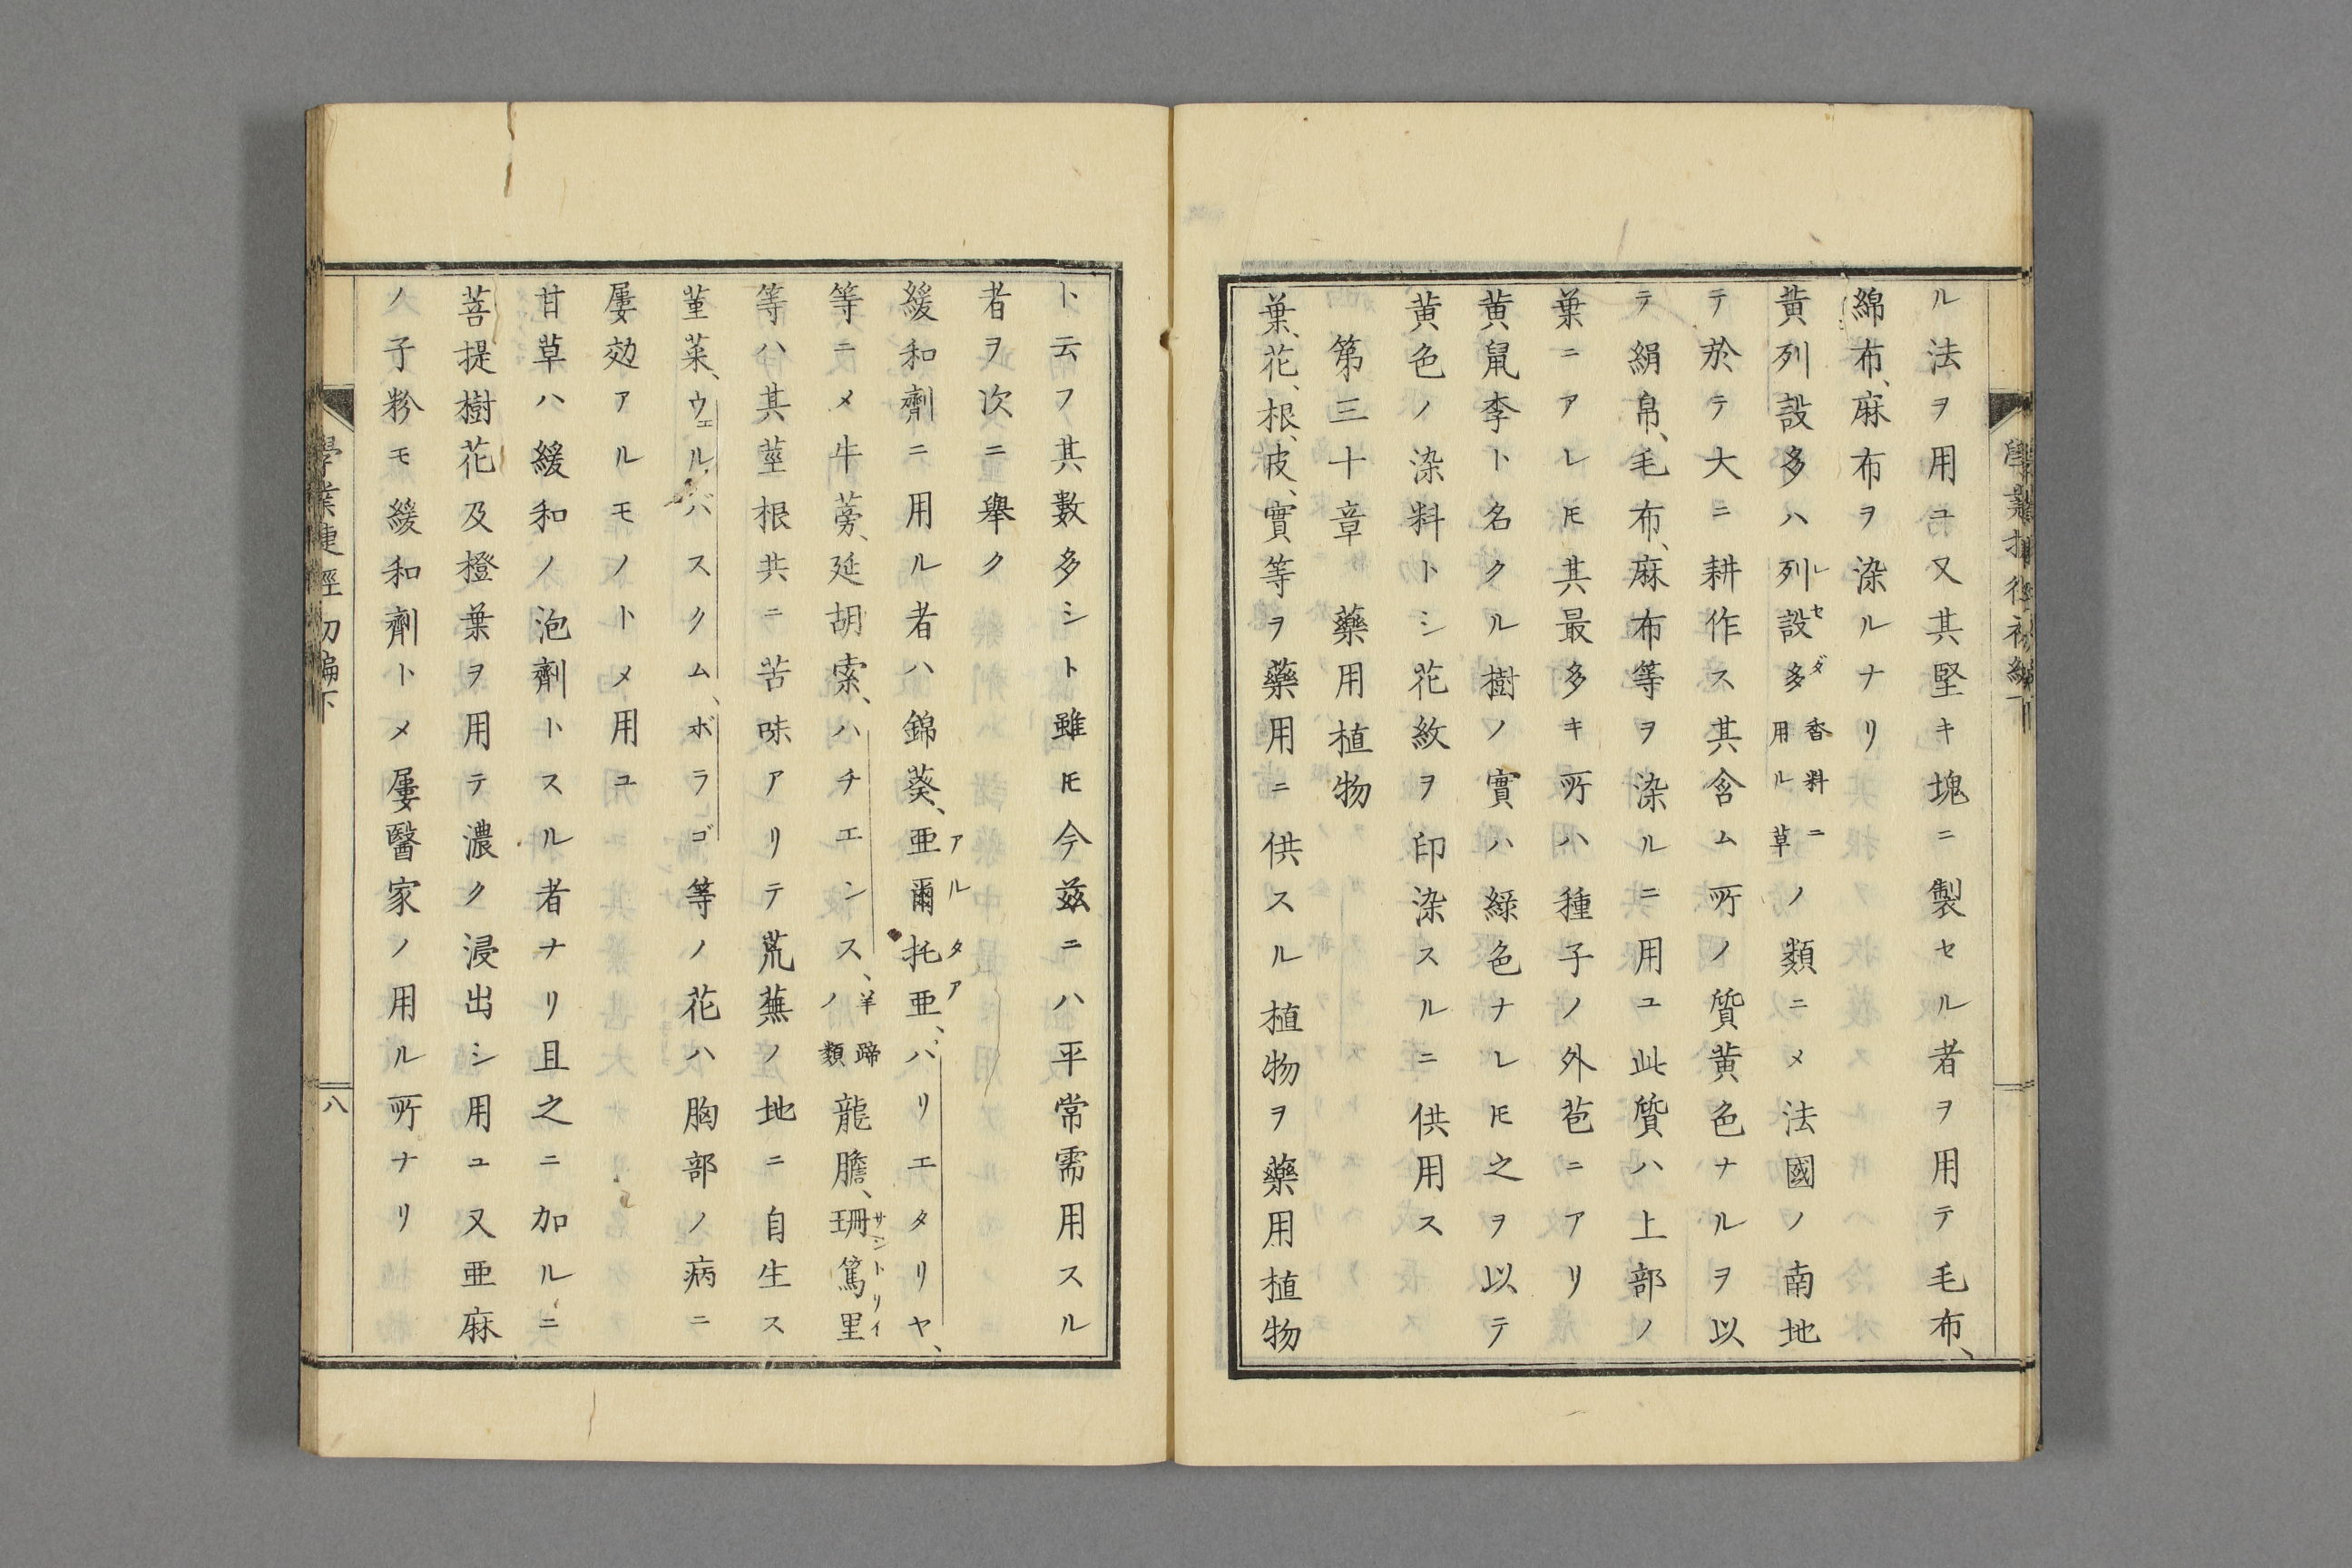 ル法ヲ用ユ又其堅キ塊ニ製セル者ヲ用テ毛布、
綿布、麻布ヲ染ルナリ
黄列設多ハ列設多レセダ香料ニ用ル草ノ類ニメ法國ノ南地
テ於テ大ニ耕作ス其含ム所ノ質黄色ナルヲ以
テ絹帛、毛布、麻布等ヲ染ルニ用ユ此質ハ上部ノ
葉ニアレ𪜈其最多キ所ハ種子ノ外苞ニアリ
黄鼠李ト名クル樹ノ實ハ緑色ナレ𪜈之ヲ以テ
黄色ノ染料トシ花紋ヲ印染スルニ供用ス
第三十章 藥用植物
葉、花、根、皮、實等ヲ藥用ニ供スル植物ヲ藥用植物
ト云フ其數多シト雖𪜈今茲ニハ平常需用スル
者ヲ次ニ舉ク
緩和劑ニ用ル者ハ錦葵、亜爾托亜アルタア、バリエタリヤ、
等ニメ牛蒡、延胡索、ハチエンス、羊蹄ノ類龍膽、珊篤里サントリイ
等ハ其莖根共ニ苦味アリテ荒蕪ノ地ニ自生ス
菫菜、ウェル、バスクム、ボラゴ等ノ花ハ胸部ノ病ニ
屢効アルモノトメ用ユ
甘草ハ緩和ノ泡劑トスル者ナリ且之ニ加ルニ
菩提樹花及橙葉ヲ用テ濃ク浸出シ用ユ又亜麻
ノ子粉モ緩和劑トメ屢醫家ノ用ル所ナリ
學業捷徑初編下
八